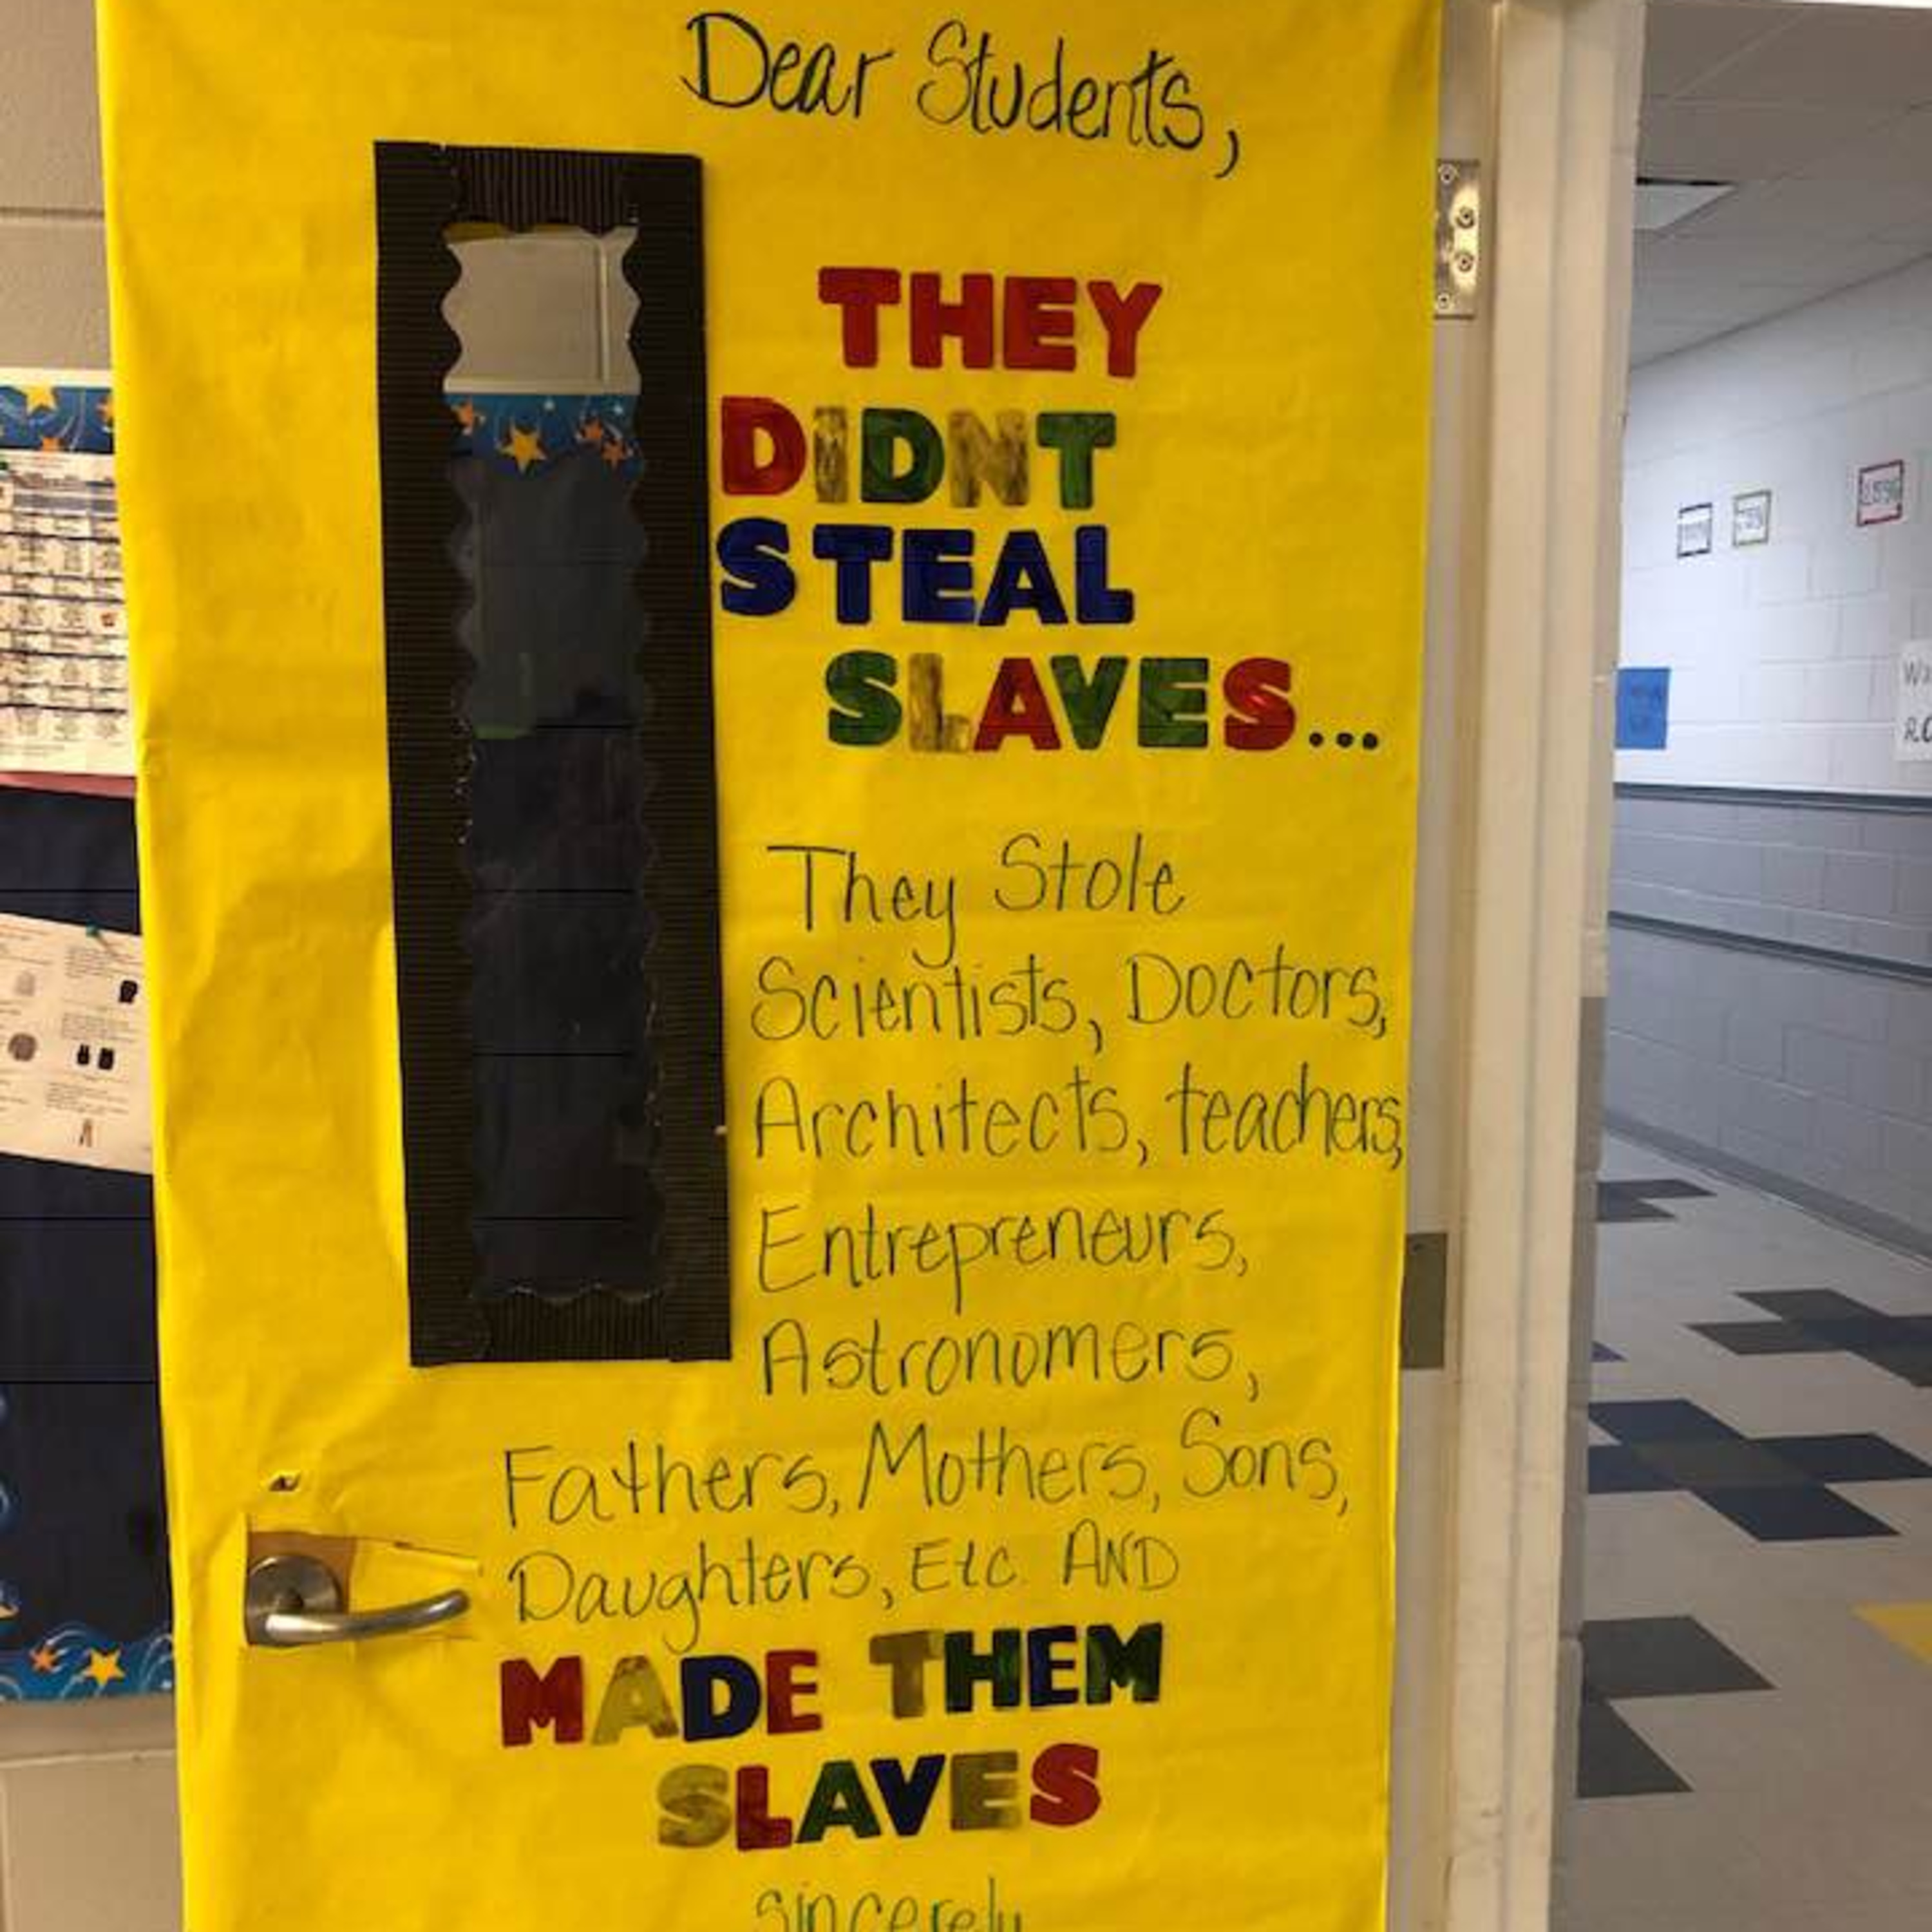 Dear Students,
THEY
DIDNT
STEAL
SLAVES...
They Stole
Scientists, Doctors,
Architects, teachers,
Entrepreneurs,
Astronomers,
Fathers, Mothers, Sons,
Daughters, Etc. AND
MADE THEM
SLAVES
sincerely